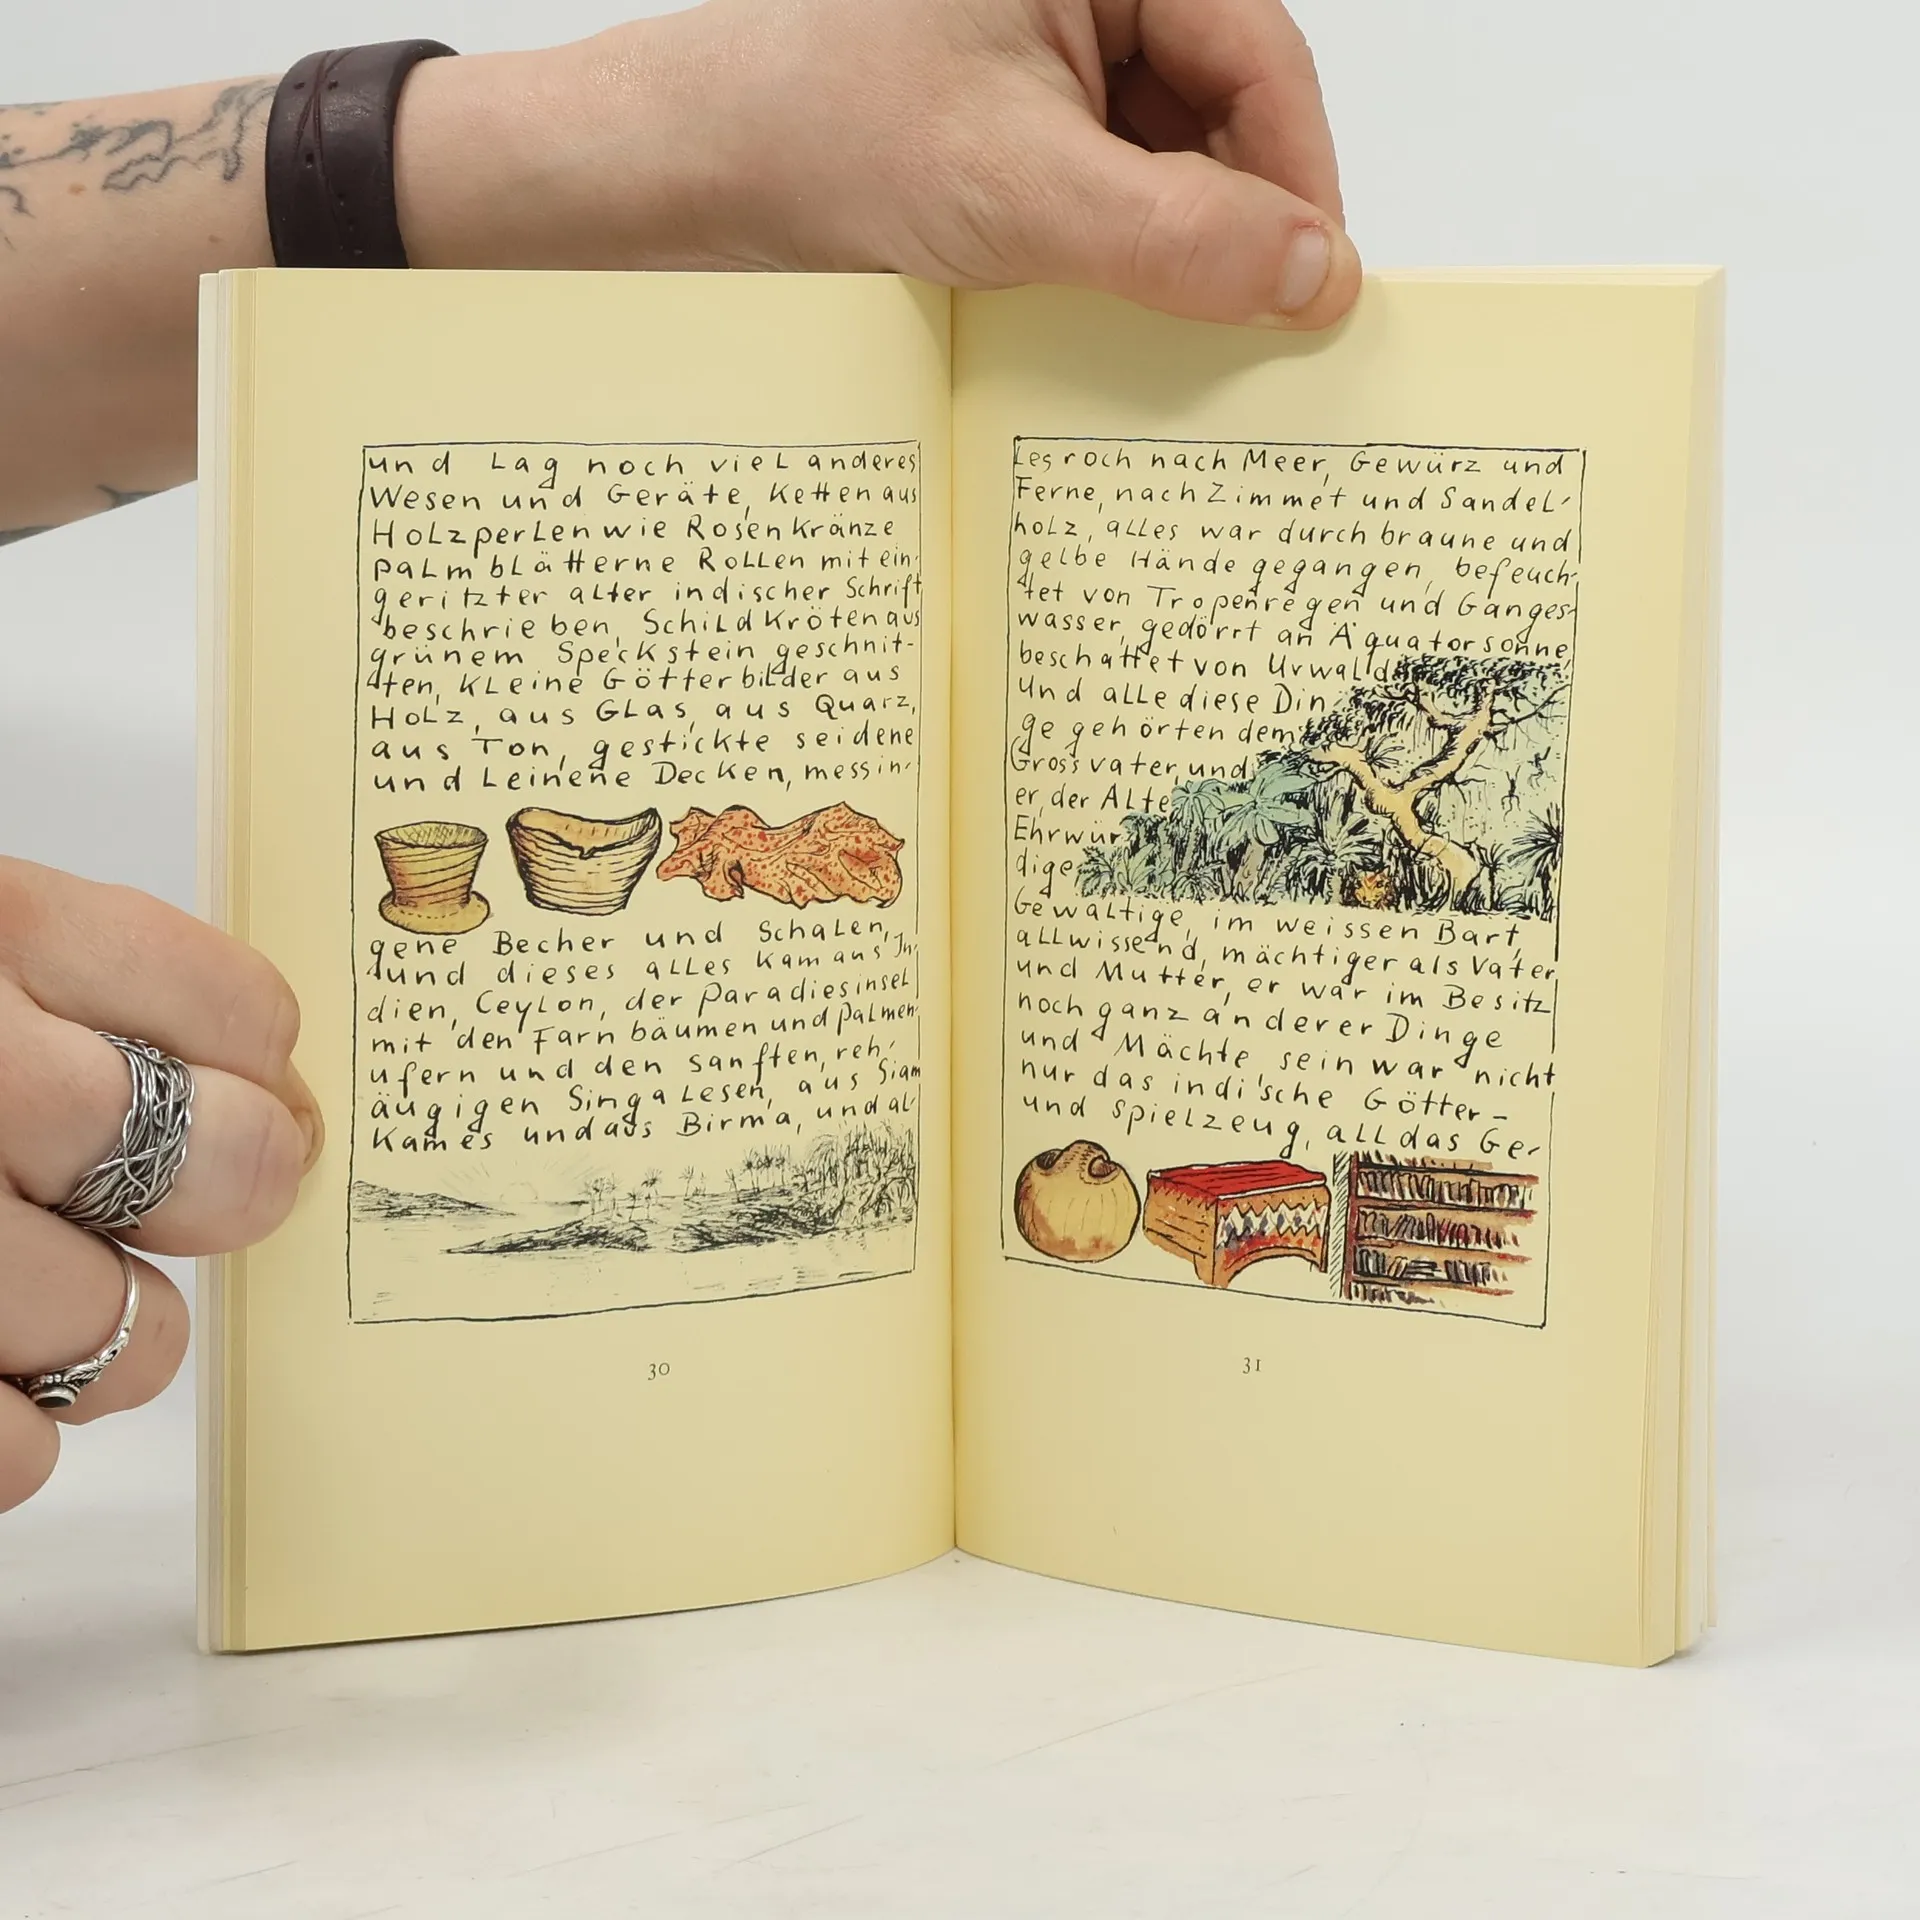 und Lag noch viel anderes
Wesen und Geräte, Ketten aus
Holzperlen wie Rosenkränze
palmblätterne Rollen mit ein-
geritzter alter indischer Schrift
beschrieben, Schildkröten aus
grünem Speckstein geschnit-
ten, kleine Götterbilder aus
Holz, aus Glas, aus Quarz,
aus Ton, gestickte seidene
und Leinene Decken, messin-
gene Becher und Schalen,
und dieses alles kam aus In-
dien, Ceylon, der Paradiesinsel
mit den Farnbäumen und Palmen-
ufern und den sanften, reh-
äugigen Singalesen, aus Siam
kam es und aus Birma, und al-
30
les roch nach Meer, Gewürz und
Ferne, nach Zimmet und Sandel-
holz, alles war durch braune und
gelbe Hände gegangen, befeuch-
tet von Tropenregen und Ganges-
wasser, gedörrt an Äquatorsonne,
beschattet von Urwald.
Und alle diese Din
ge gehörten dem
Grossvater, und
er, der Alte
Ehrwür
dige
Gewaltige, im weissen Bart,
allwissend, mächtiger als Vater
und Mutter, er war im Besitz
noch ganz anderer Dinge
und Mächte, sein war nicht
nur das indi'sche Götter-
und Spielzeug, all das Ge-
31